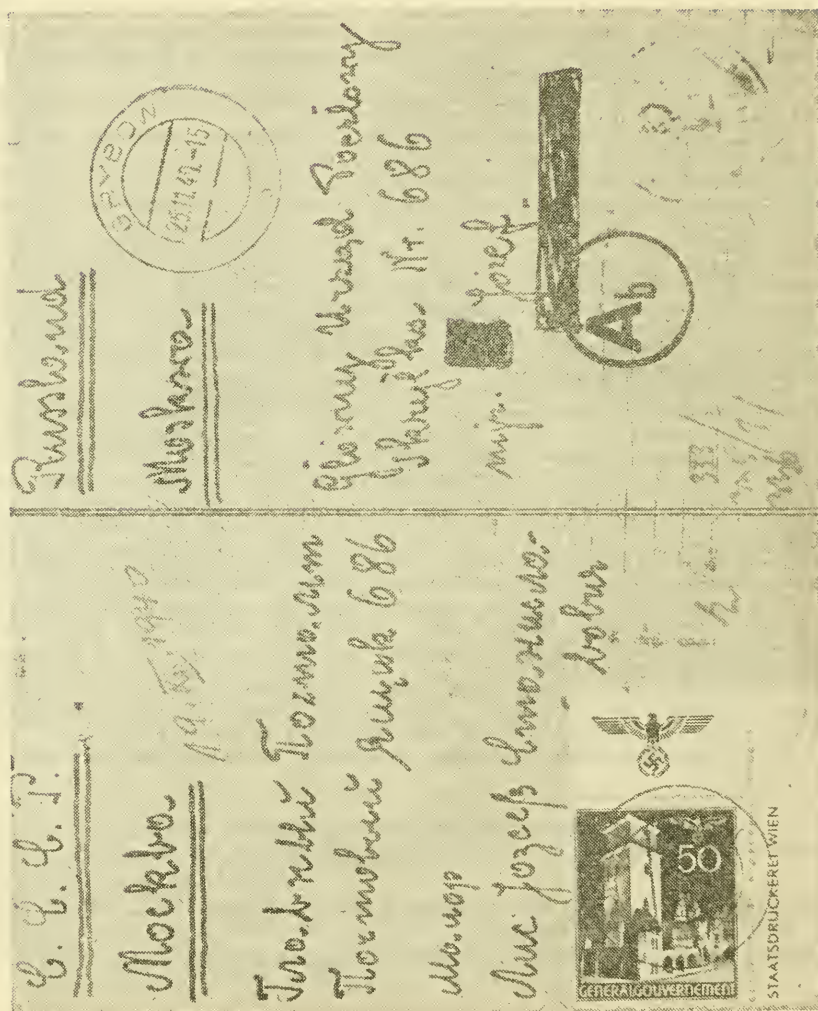 С. С. С. Р.
Москва
19.XII.1940
Почтамт
Почтовый ящик 686
Майор
Лис Jозеф Станисла-
вович
50
GENERALGOUVERNEMENT
STAATSDRUCKEREI WIEN
Russland
Moskwa
GRYBOW
Główny Urząd Pocztowy
Skrytka Nr. 686
mjr. Józef
Ab